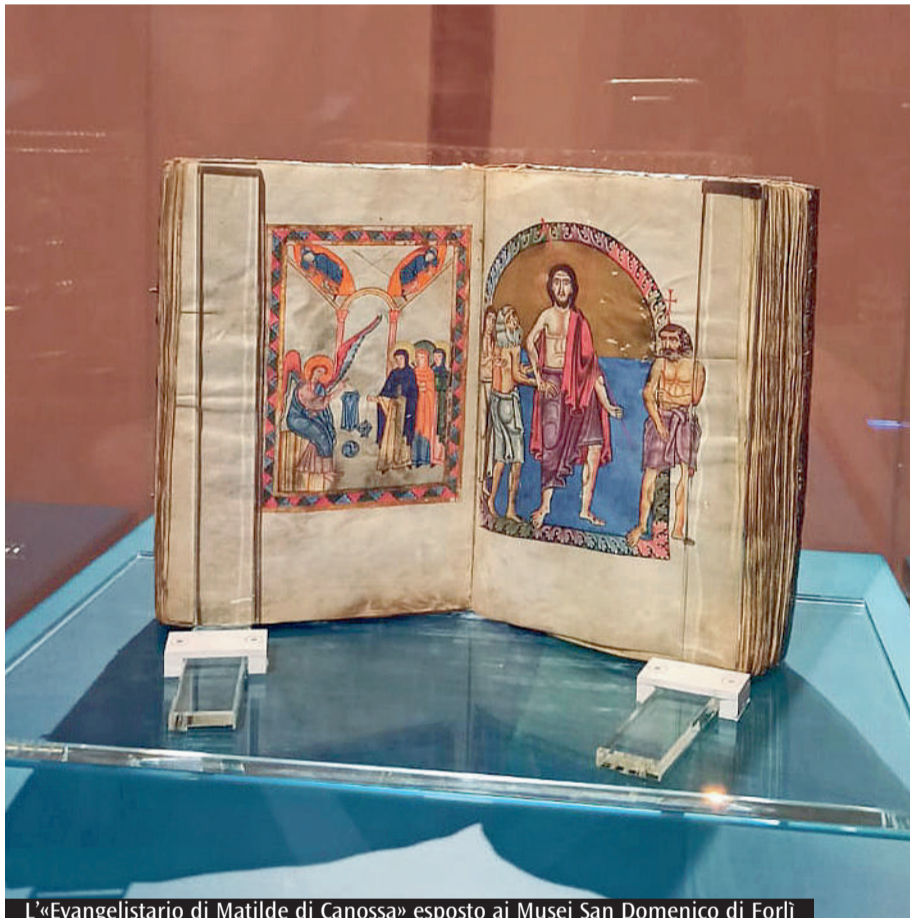 L'«Evangelistario di Matilde di Canossa» esposto ai Musei San Domenico di Forlì